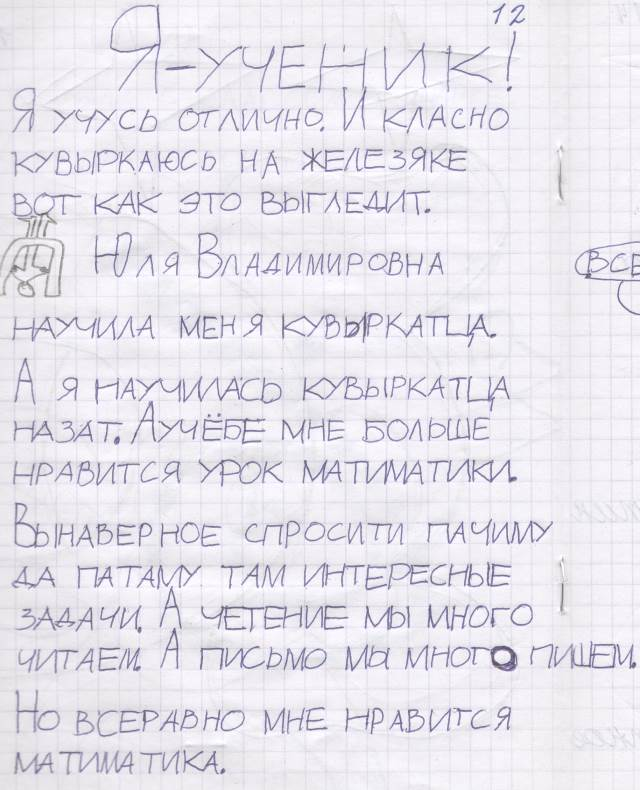 12
Я-УЧЕНИК!
Я УЧУСЬ ОТЛИЧНО. И КЛАСНО
КУВЫРКАЮСЬ НА ЖЕЛЕЗЯКЕ
ВОТ КАК ЭТО ВЫГЛЕДИТ.
ЮЛЯ ВЛАДИМИРОВНА
ВСЕ
НАУЧИЛА МЕНЯ КУВЫРКАТЦА.
А Я НАУЧИЛАСЬ КУВЫРКАТЦА
НАЗАТ. АУЧЁБЕ МНЕ БОЛЬШЕ
НРАВИТСЯ УРОК МАТИМАТИКИ.
ВЫНАВЕРНОЕ СПРОСИТИ ПАЧИМУ
ДА ПАТАМУ ТАМ ИНТЕРЕСНЫЕ
ЗАДАЧИ. А ЧЕТЕНИЕ МЫ МНОГО
ЧИТАЕМ. А ПИСЬМО МЫ МНОГО ПИШЕМ.
НО ВСЕРАВНО МНЕ НРАВИТСЯ
МАТИМАТИКА.